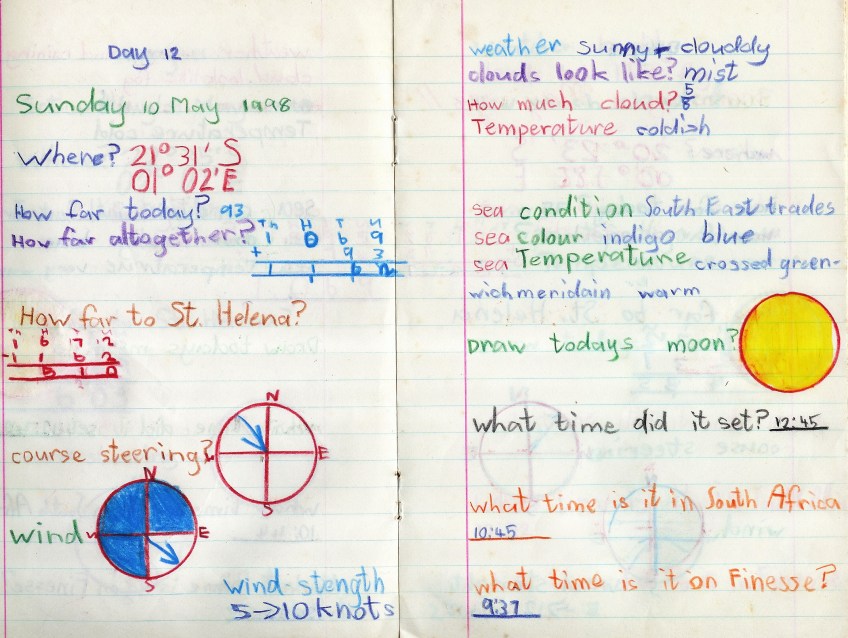 Day 12
Sunday 10 May 1998
Where? 21° 31' S
01° 02' E
How far today? 93
How far altogether?
Th H T U
1 0 6 9
+ 9 3
1 1 6 2
How far to St. Helena?
Th H T U
1 6 7 2
- 1 1 6 2
5 1 0
course steering?
N
E
S
wind
N
W E
S
wind stength
5->10 knots
weather sunny + clouddy
clouds look like? mist
How much cloud? 5/8
Temperature coldish
sea condition South East trades
sea colour indigo blue
sea Temperature crossed green-
wich meridain warm
Draw todays moon?
what time did it set? 12:45
what time is it in South Africa
10:45
what time is it on Finesse?
9:37